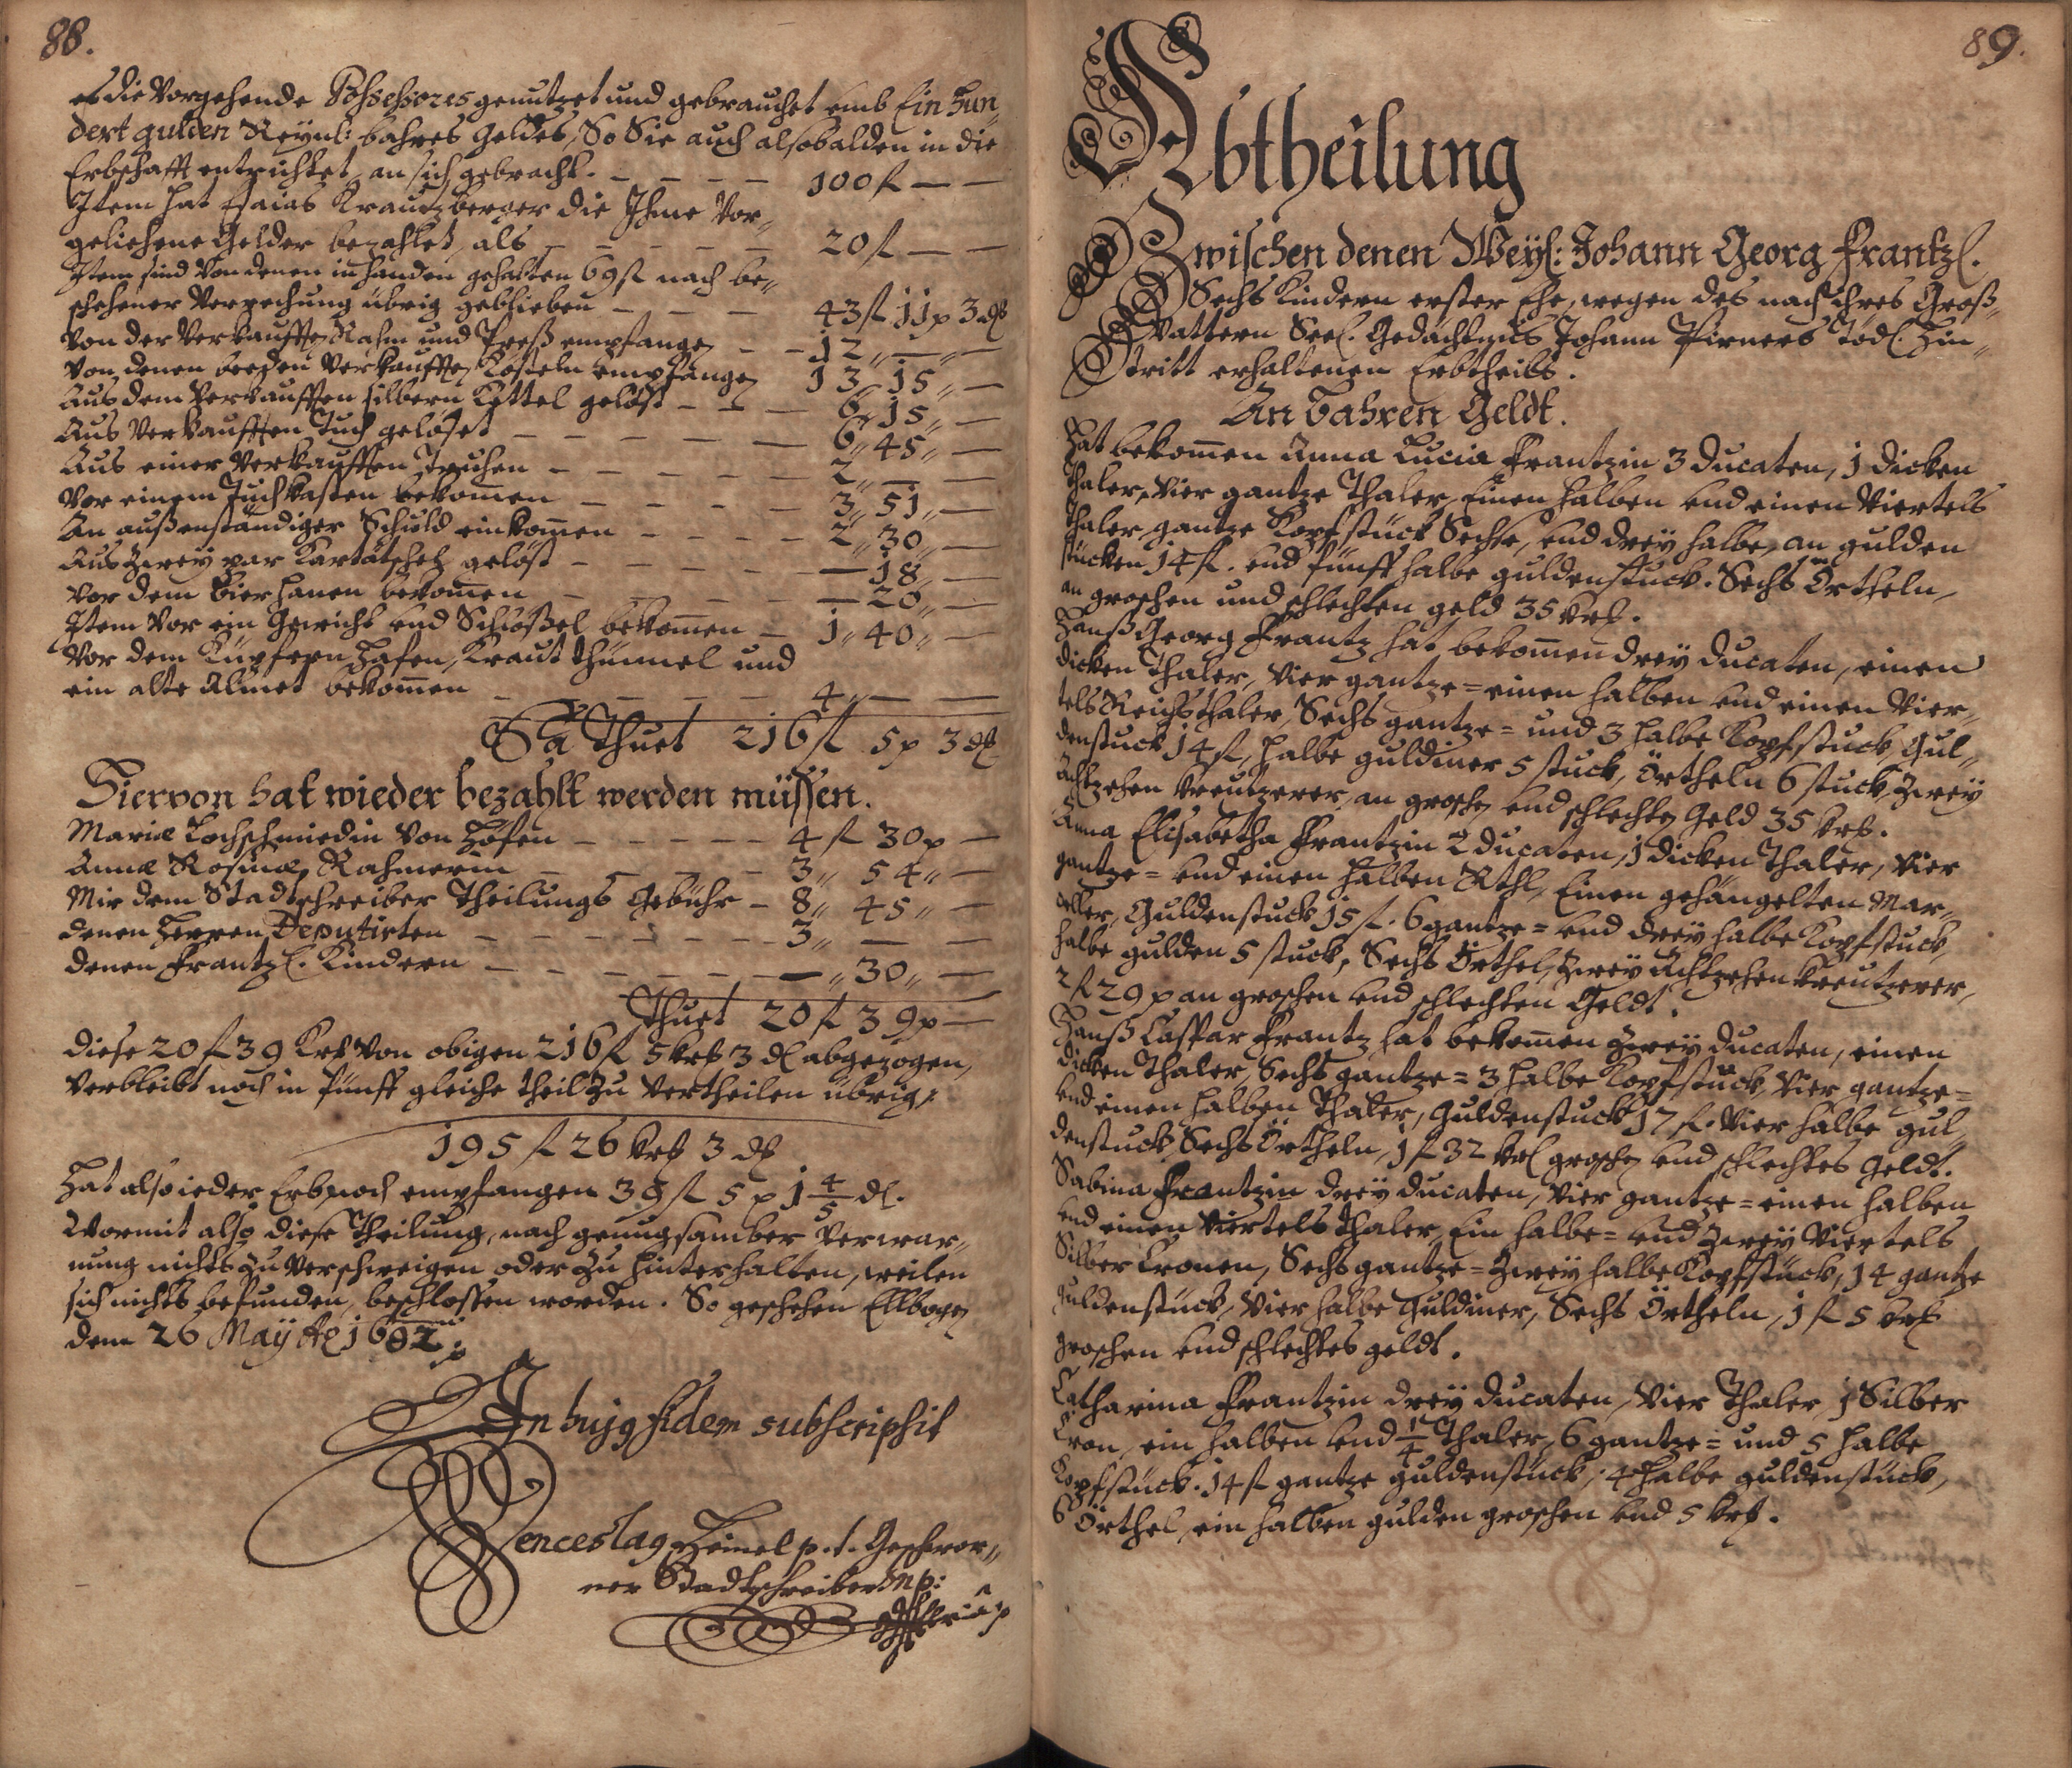 88.
es die Vorgehende Possessores genutzet und gebrauchet umb Ein hun„
dert gulden Reynl: bahres Geldes, So Sie auch alsobalden in die
Erbschafft entrichtet, an sich gebracht. — — — — 100 fl — —
Item hat Esaias Krautzberger die Ihme Vor„
geliehene Gelder bezahlet, als — — — — — 20 fl — —
Item sind von denen in handen gehalten 69 fl nach be„
schehener Verrechung übrig geblieben — — — 43 fl 11 x 3 d
Von der Verkaufften Rahm und Preß empfangen — — 12 „ — „ —
Von denen beeden Verkaufften empfangen 13 „ 15 „ —
Aus dem Verkaufften silbern Kettel gelöst — — — 6 „ 15 „ —
Aus Verkaufften Tuch gelöset — — — — — 6 „ 45 „ —
Aus einer Verkaufften Truhen — — — — 2 „ — —
Vor einem Tuchkasten bekommen — — — — 3 „ 51 „ —
An außenständiger Schuld einkommen — — — — 2 „ 30 „ —
Aus Zwey par Kartätschen gelöst — — — — — — 18 „ —
Vor dem Bier hanen bekommen — — — — — 20 „ —
Item Vor ein Gewicht und Schlößel bekommen — 1 „ 40 „ —
Vor dem Küpfern Hafen, Kraut thümmel und
ein alte Almet bekommen — — — — — 4 „ — —
Sa Thuet 216 fl 5 x 3 d
Hiervon hat wieder bezahlt werden müssen.
Mariæ Lochschmiedin von Höfen — — — — — 4 fl 30 x —
Annæ Rosinæ Rahmerin — — — — — 3 „ 54 „ —
Mir dem Stadtschreiber Theilungs Gebühr — 8 „ 45 „ —
denen Herren Deputirten — — — — — — — 3 „ — —
denen Frantzl. Kindern — — — — — — — — „ 30 „ —
Thuet 20 fl 39 x —
diese 20 fl 39 Krf von obigen 216 fl 5 krf 3 d abgezogen,
Verbleibt noch in fünff gleiche theil zu Vertheilen übrig:
195 fl 26 krf 3 d
Hat also ieder Erb noch empfangen 39 fl 5 x 1 4/5 d.
Wormit also diese Theilung, nach genugsamber Verwar„
nung nichts zu Verschweigen oder zu hinterhalten, weilen
sich nichts befunden, beschlossen worden. So geschehen Ellbogen
dem 26 May Ao 1692.
In hujg fidem subscripsit
Wenceslag Heinel p.t. Geschwor„
ner Stadtschreiber mp:
89.
Abtheilung
Zwischen denen Weyl: Johann Georg Frantzl.
Sechs Kindern erster Ehe, wegen des nach ihres Groß„
Vattern Seel. Gedächtnus Johann Pirners Tödl. Hin„
tritt erhaltenen Erbtheils.
An Bahren Geldt.
Hat bekommen Anna Lucia Frantzin 3 Ducaten, 1 dicken
Thaler, Vier gantze Thaler, Einen halben und einen Viertels
thaler, gantze Kopfstück Sechse, und drey halbe, an gulden
stücken 14 fl. und fünff halbe guldenstuck. Sechs Örtheln,
an groschen und schlechten geld 35 krf.
Hanß Georg Frantz hat bekommen drey Ducaten, einen
dicken Thaler, Vier gantze = einen halben und einen Vier„
tels Reichsthaler, Sechs gantze = und 3 halbe Kopfstuck, Gul„
denstuck 14 fl, halbe guldiner 5 stuck, Örtheln 6 stuck, Zwey
Achtzehen kreutzerer, an groschen und schlechten Geld 35 krf.
Anna Elisabetha Frantzin 2 Ducaten, 1 dicken Thaler, Vier
gantze = und einen halben Rthl, Einen gehängelten Mar„
celler, Guldenstuck 15 fl. 6 gantze = und drey halbe Kopfstuck,
halbe gulden 5 stuck, Sechs Örthel, Zwey Achtzehen kreutzerer,
2 fl 29 x an groschen und schlechten Geldt.
Hanß Caspar Frantz hat bekommen Zwey Ducaten, einen
dicken Thaler, Sechs gantze = 3 halbe Kopfstuck, Vier gantze =
und einen halben Thaler, Guldenstuck 17 fl. Vier halbe gul„
denstuck, Sechs Örtheln, 1 fl 32 krl groschen und schlechtes Geldt.
Sabina Frantzin drey Ducaten, Vier gantze = einen halben
und einen Viertels thaler, Ein halbe = und Zwey Viertels
Silber Cronen, Sechs gantze = Zwey halbe Kopfstück, 14 gantze
guldenstück, Vier halbe Guldiner, Sechs Örtheln, 1 fl 5 krf
groschen und schlechtes geldt.
Catharina Frantzin drey Ducaten, Vier Thaler, 1 Silber
Cron, ein halben und 1/4 Thaler, 6 gantze = und 5 halbe
Kopfstück. 14 fl gantze guldenstück, 4 halbe guldenstück,
6 Örthel, ein halben gulden groschen und 5 krf.